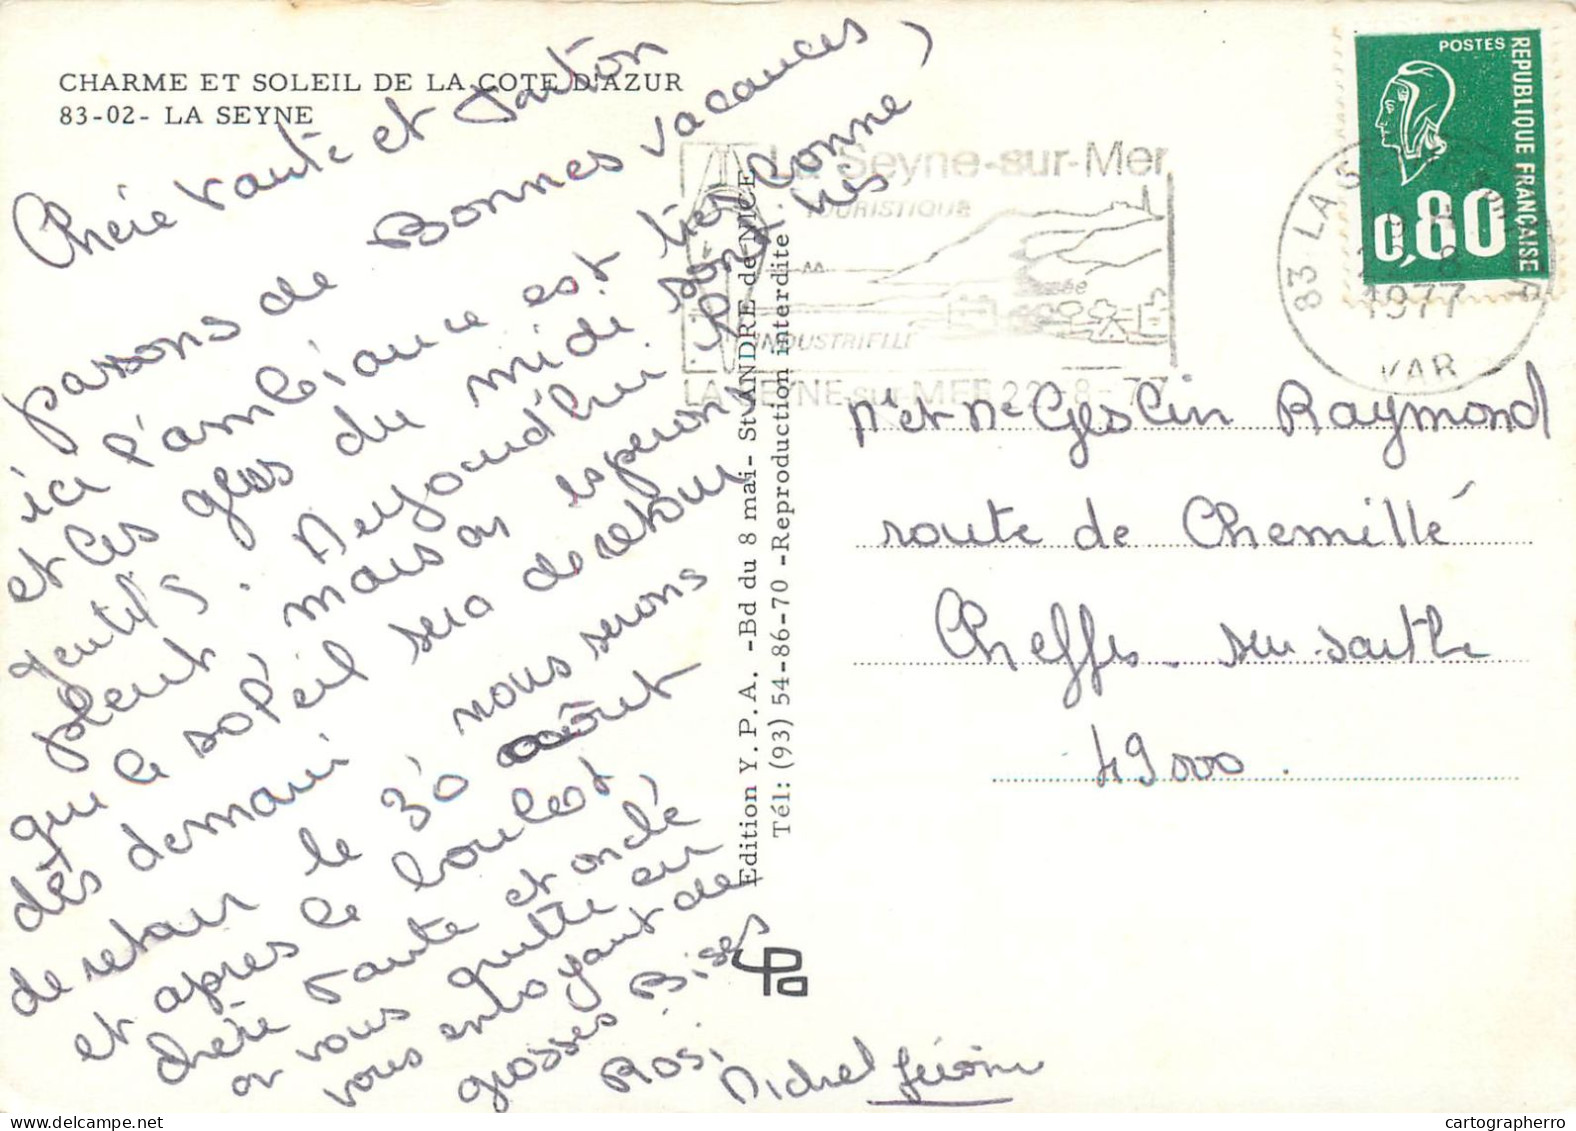 CHARME ET SOLEIL DE LA COTE D'AZUR
83-02- LA SEYNE
Chérie Tante et Tonton
passons de Bonnes vacances,
ici l'ambiance est très bonne
et les gens du midi sont très
gentils. Aujourd'hui il
pleut mais on esperons
que le soleil sera de retour
dès demain nous serons
de retour le 30 août
et apres le boulot
chérie Tante et oncle
on vous quitte en
vous envoyant de
grosses Bises
Rosi
Michel Jérôme
Edition Y. P. A. -Bd du 8 mai- St ANDRE de NICE
Tél: (93) 54-86-70 -Reproduction interdite
La Seyne-sur-Mer
TOURISTIQUE
INDUSTRIELLE
LA SEYNE-sur-MER 22-8-77
POSTES
REPUBLIQUE FRANÇAISE
0,80
83 LA
1977
VAR
Mr et Me Geslin Raymond
route de Chemillé
Cheffes-sur-sarthe
49000.
cartographerro